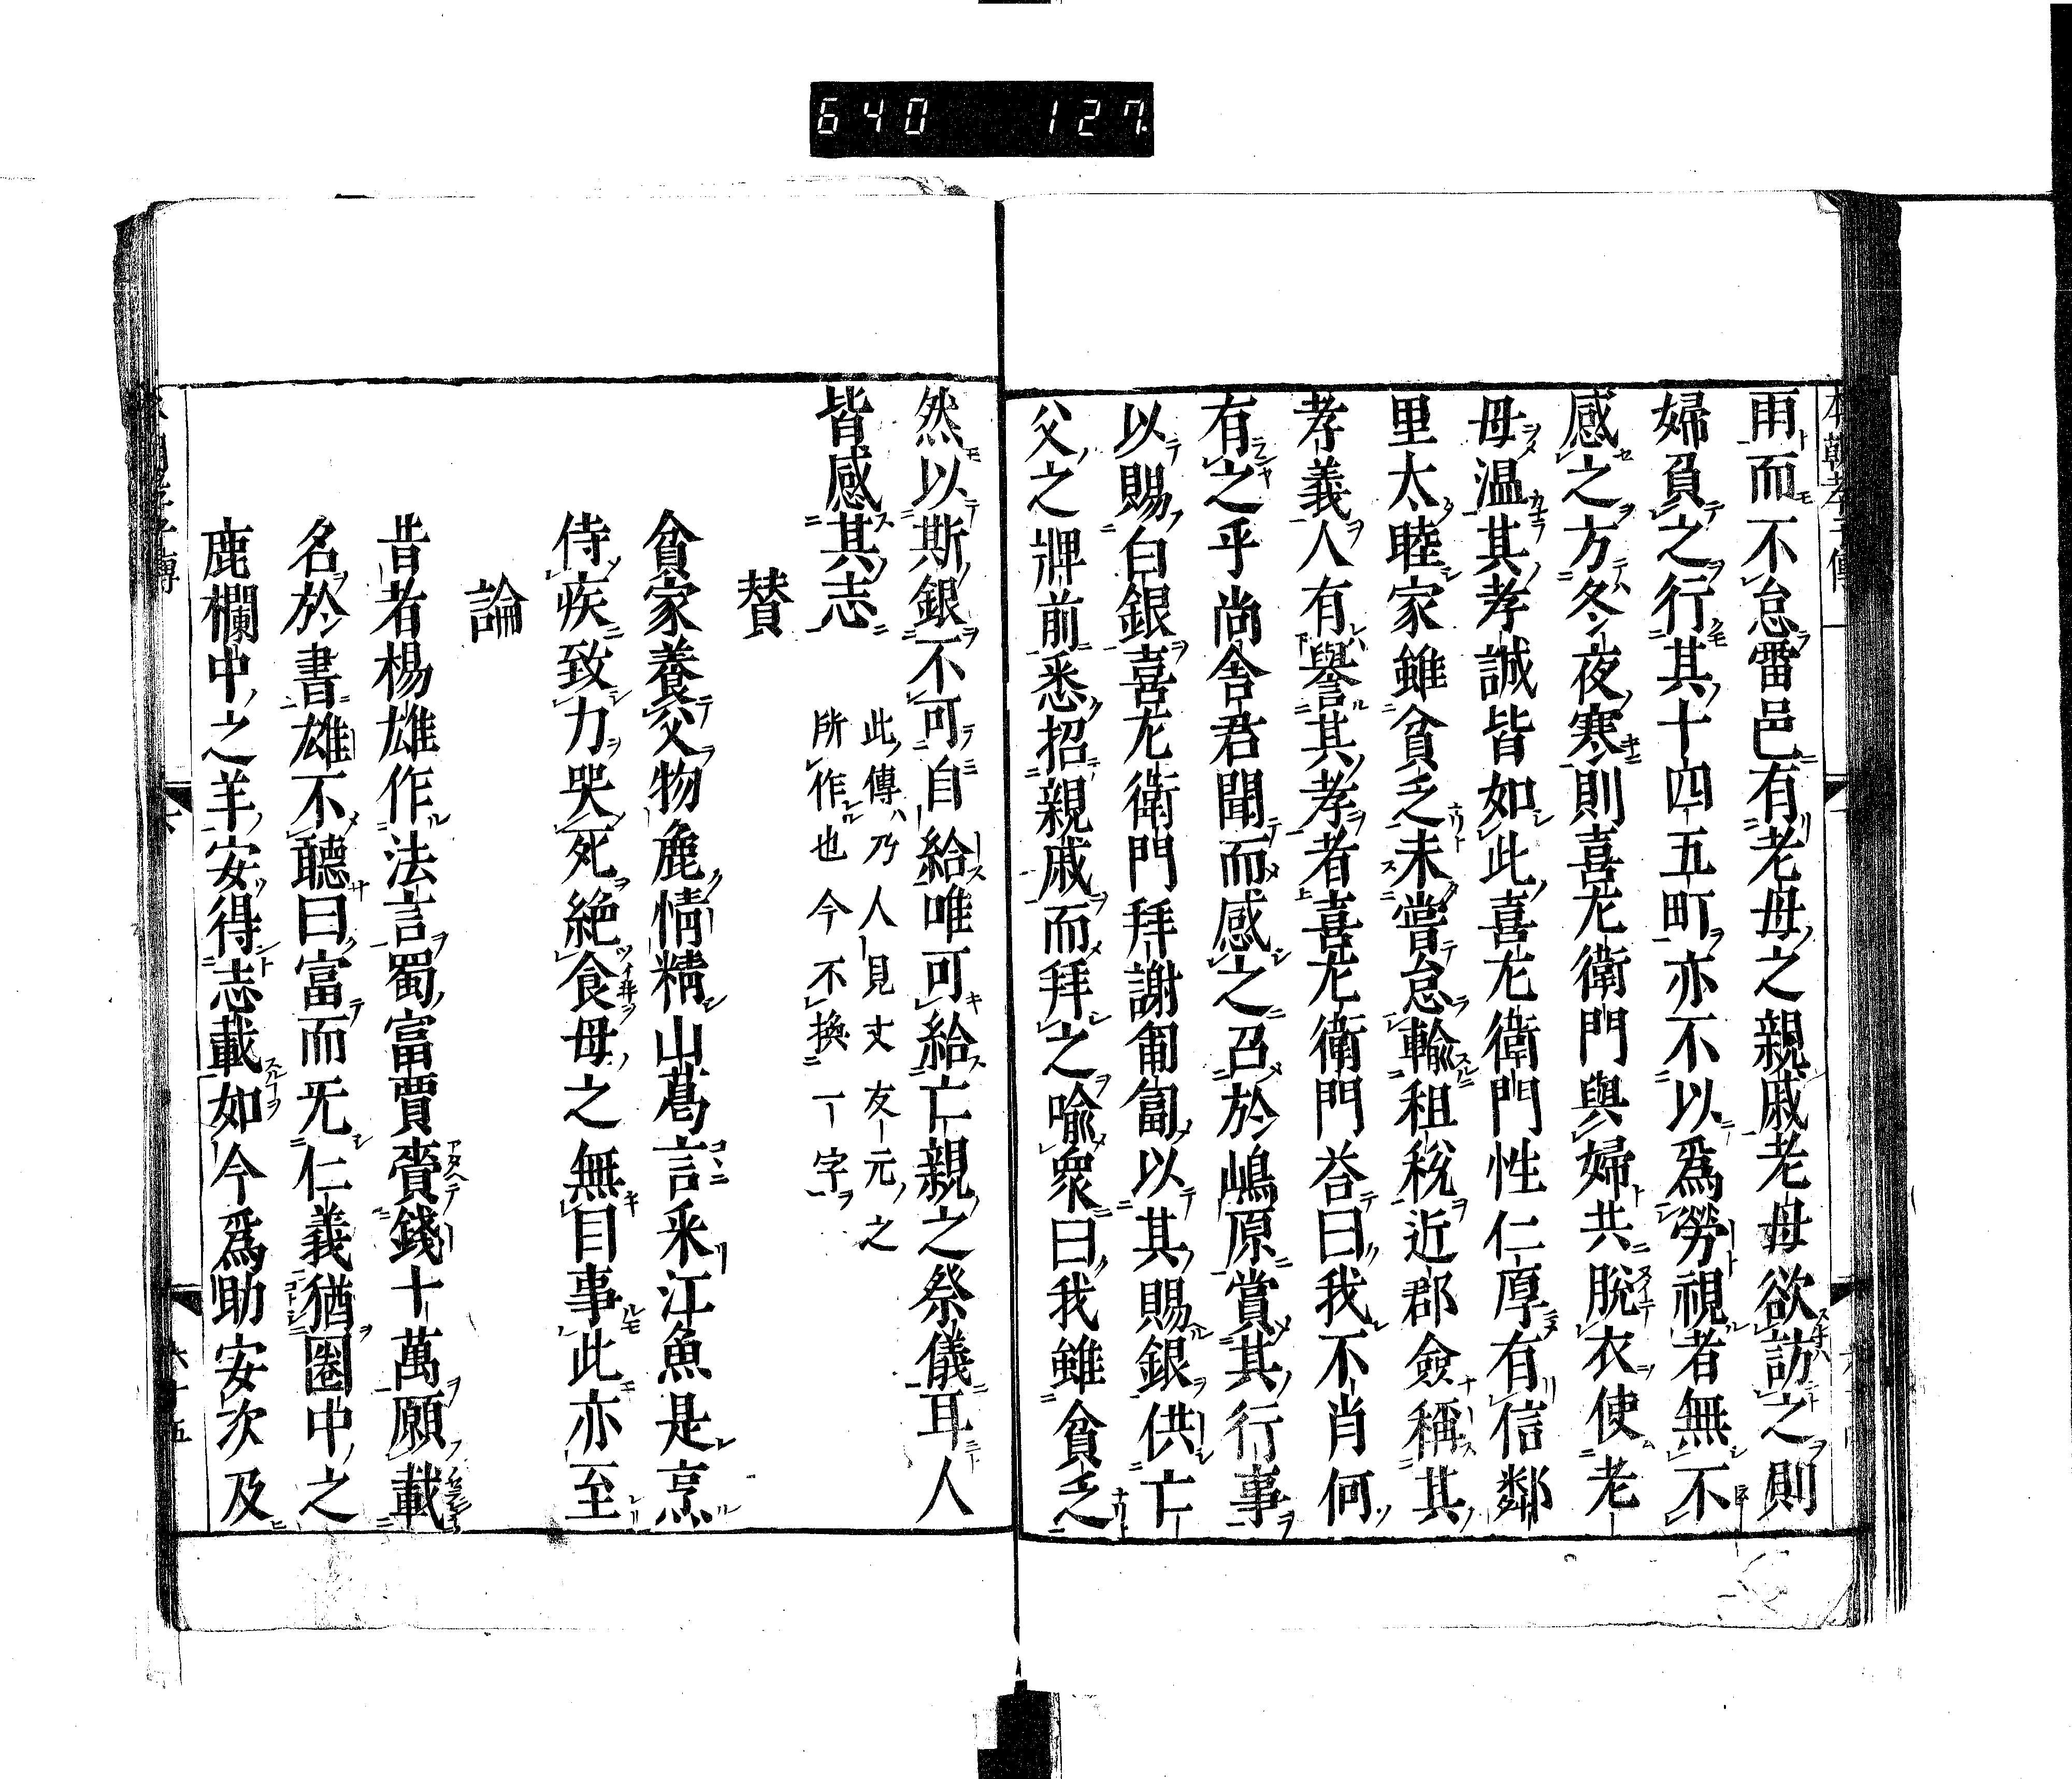 640 127
雨而不怠雷邑有老母之親戚老母欲訪之則
婦負之行其十四五町亦不以爲勞視者無不
感之方冬夜寒則喜尤衛門與婦共脫衣使老
母温其孝誠皆如此喜尤衛門性仁厚有信鄰
里太睦家雖貧乏未嘗怠輸租稅近郡僉稱其
孝義人有譽其孝者喜尤衛門荅曰我不肖何
有之乎尚舎君聞而感之召於嶋原賞其行事
以賜白銀喜尤衛門拜謝匍匐以其賜銀供亡
父之牌前悉招親戚而拜之喻衆曰我雖貧乏
然以斯銀不可自給唯可給亡親之祭儀耳人
皆感其志
此傳乃人見丈友元之
所作也今不換一字
賛
貧家養父物麁情精山蒭言釆江魚是烹
侍疾致力哭死絶食母之無目事此亦至
論
昔者楊雄作法言蜀富賈賷錢十萬願載
名於書雄不聽曰富而旡仁義猶圈中之
鹿欄中之羊安得志載如今爲助安次及
六十五